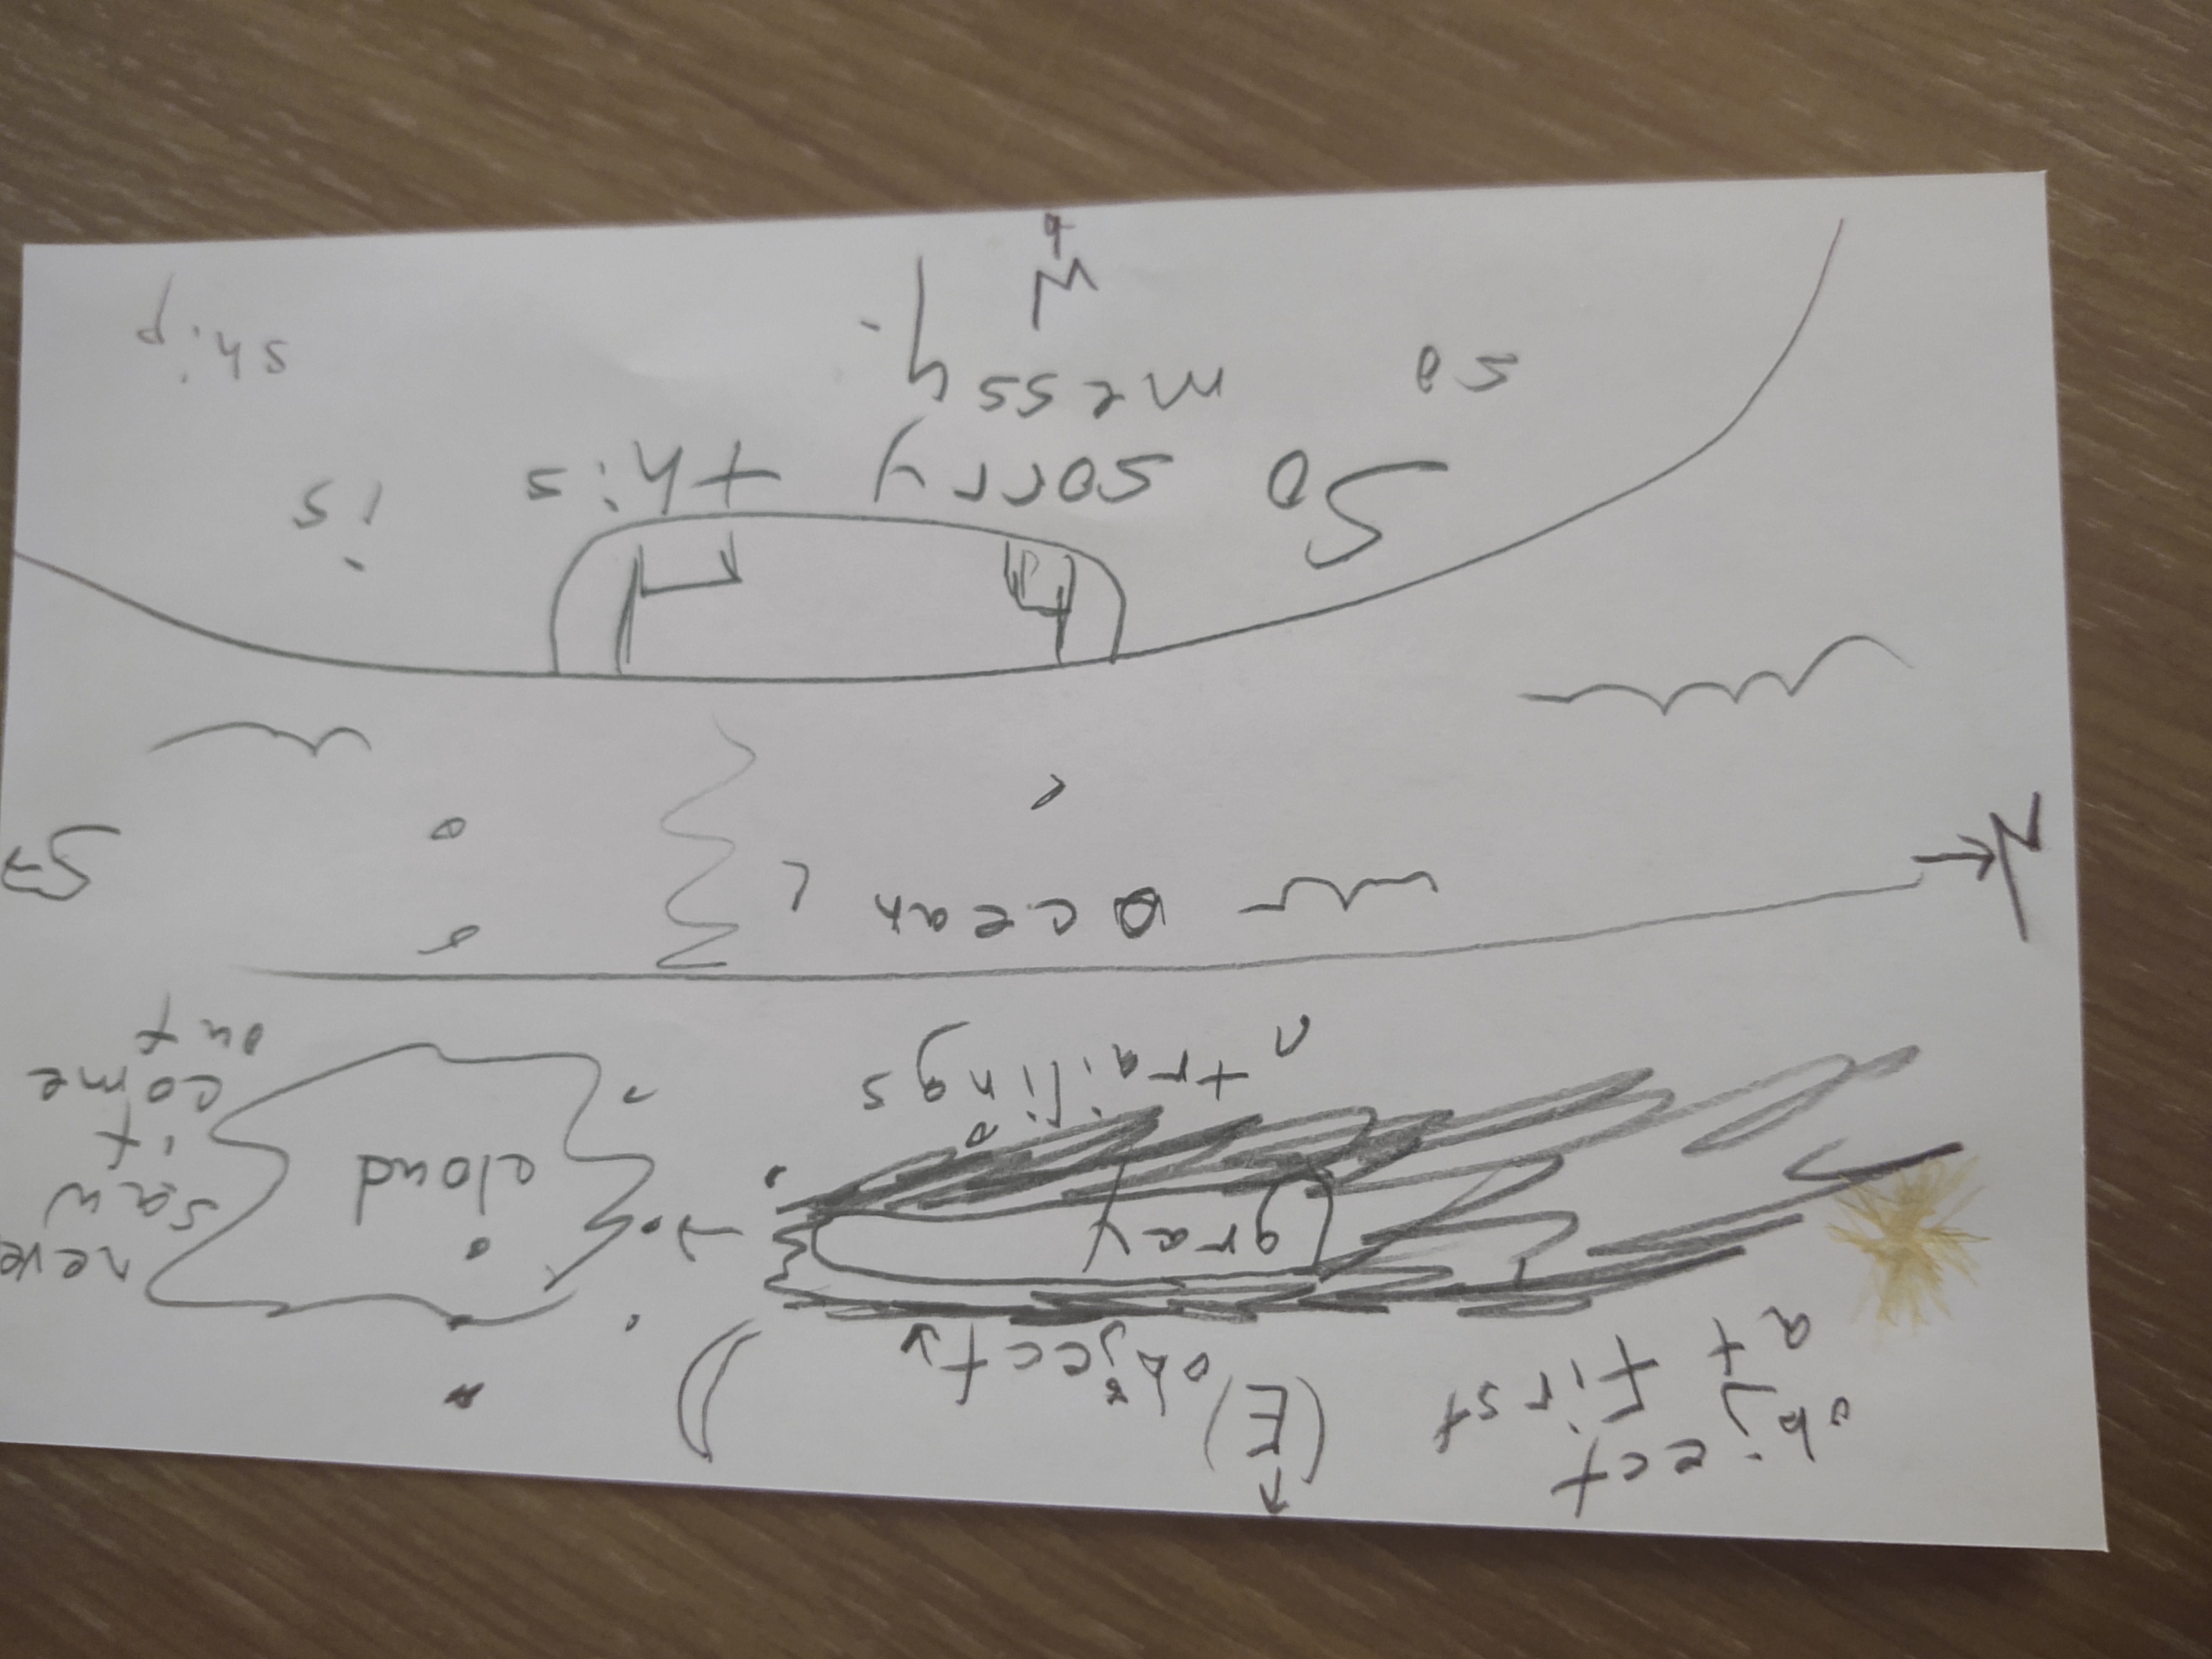 object
at first
(E)
object
never
saw
it
come
out
cloud
gray
trailings
N
ocean
S
So sorry this is
so messy.
ship
W